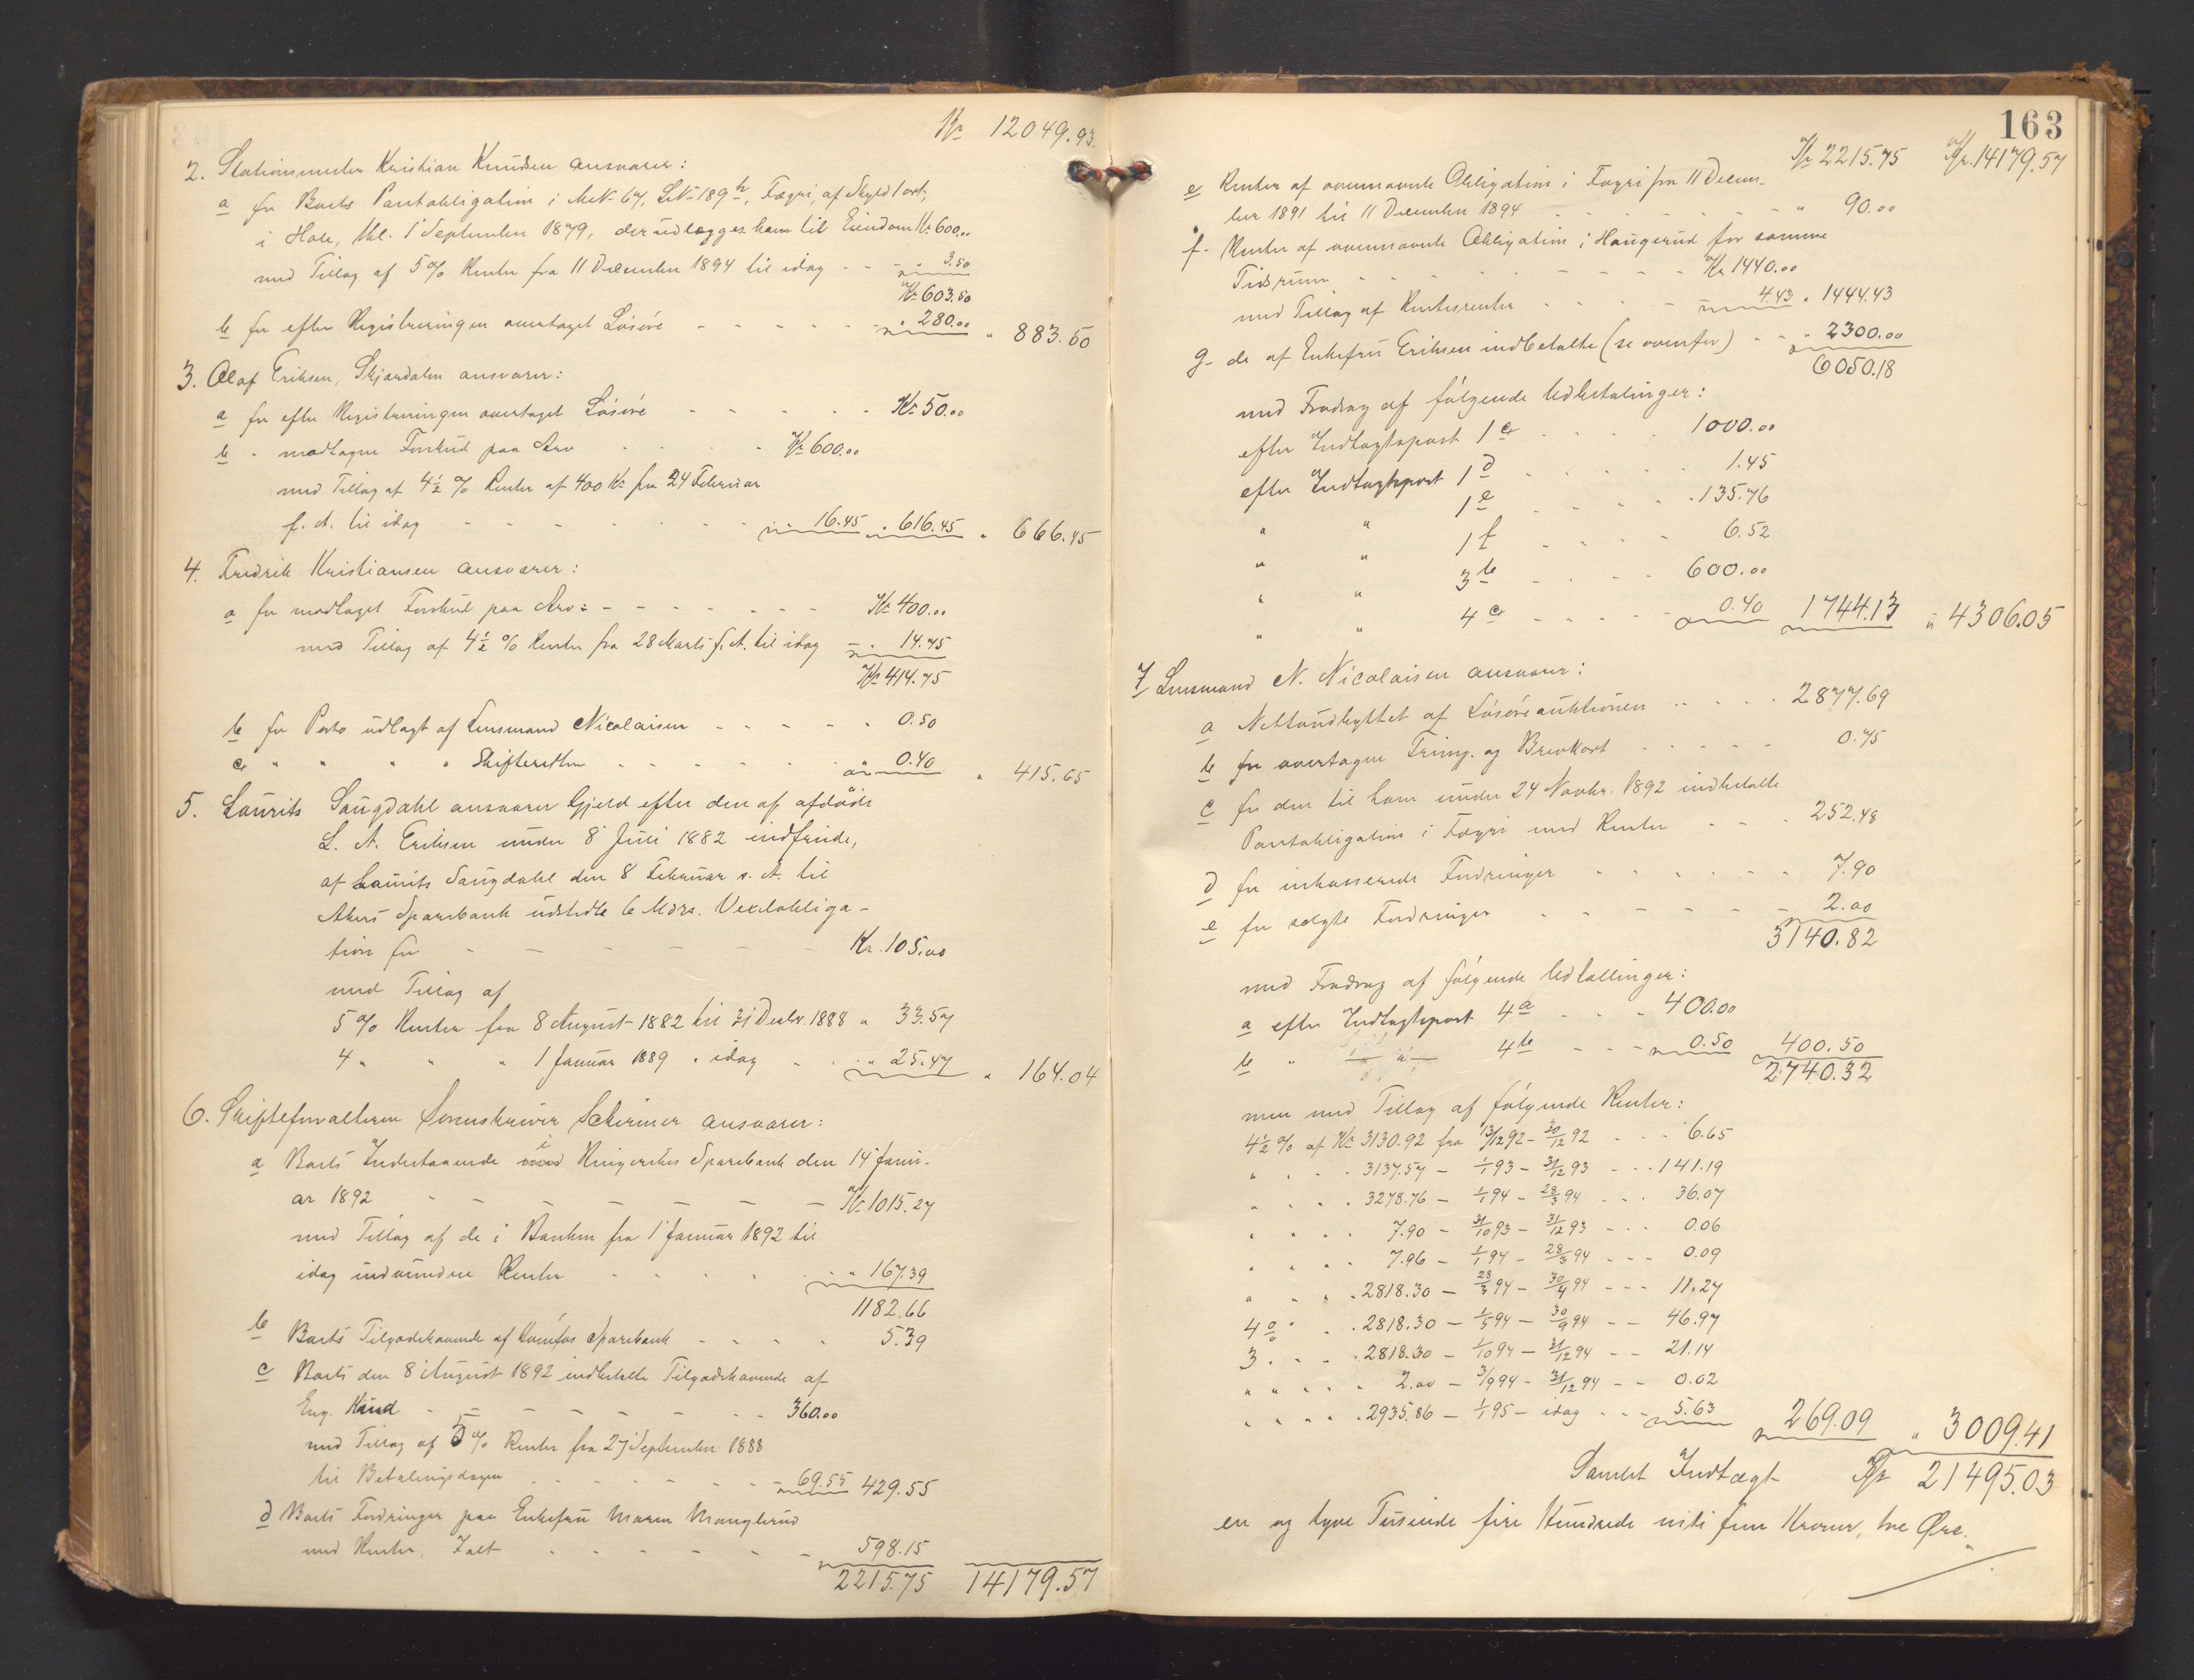 Kr 12049.93.
2. Stationsmester Kristian Knudsen ansvarer:
a for Boets Pantobligation i M.N. 67, L.N. 189 h, Fægri, af Skyld 1 ort,
i Hole, thl. 1 September 1879, der udlægges ham til Eiendom Kr. 600,00
med Tillæg af 5 % Renter fra 11 December 1894 til idag - - " 3.50
Kr 603.50
b for efter Registreringen overtaget Løsøre - - - - - " 280.00 " 883.50
3. Olaf Eriksen, Skjærdalen ansvarer:
a for efter Registreringen overtaget Løsøre - - - - - Kr 50.00
b " modtagne Forskud paa Arv - - - Kr 600.00
med Tillæg af 4½ % Renter af 400 Kr fra 24 Februar
f. A. til idag - - - - - - " 16.45 " 616.45 " 666.45
4. Fredrik Kristiansen ansvarer:
a for modtaget Forskud paa Arv: - - - - - - Kr 400.00
med Tillæg af 4½ % Renter fra 28 Marts f. A. til idag - " 14.75
Kr 414.75
b for Porto udlagt af Lensmand Nicolaisen - - - - - 0.50
c " " " " Skifteretten - - - - - " 0.40 " 415.65
5. Laurits Saugdahl ansvarer Gjeld efter den af afdøde
L. A. Eriksen under 8 Juni 1882 indfriede,
af Laurits Saugdahl den 8 Februar s. A. til
Akers Sparebank udstedte 6 Mdrs. Vexelobliga-
tion for - - - - - - Kr. 105,00
med Tillæg af
5 % Renter fra 8 August 1882 til 31 Decbr. 1888 " 33.57
4 " " " 1 Januar 1889 " idag - - " 25.47 " 164.04
6. Skifteforvalteren Sorenskriver Schirmer ansvarer:
a Boets Indestaaende i Ringerikes Sparebank den 14 Janu-
ar 1892 - - - - - - - Kr 1015.27
med Tillæg af de i Banken fra 1 Januar 1892 til
idag indvundne Renter - - - - - " 167.39
1182.66
b Boets Tilgodehavende af Hønefos Sparebank - - - - 5.39
c Boets den 8 August 1892 indbetalte Tilgodehavende af
Eng. Hind - - - - - - - 360.00
med Tillæg af 5 % Renter fra 27 September 1888
til Betalingsdagen - - - - - - - 69.55 429.55
d Boets Fordringer paa Enkefru Maren Manglerud
med Renter, Ialt - - - - - - - 598.15
2215.75 14179.57
163
Kr 2215.75 Kr. 14179.57
e Renter af ovennævnte Obligation i Fægri fra 11 Decem-
ber 1891 til 11 December 1894 - - - - - - " 90.00
f. Renter af ovennævnte Obligation i Haugerud for samme
Tidsrum - - - - - - Kr 1440.00
med Tillæg af Rentesrenter - - - - 4.43 " 1444.43
g- de af Enkefru Eriksen indbetalte (se ovenfor) - - " 2300.00
6050.18
med Fradrag af følgende Udbetalinger:
efter Indtægtspost 1 c - - - - 1000.00
efter Indtægtspost 1 d - - - - 1.45
" " 1 e - - - - 135.76
" " 1 f - - - - 6.52
" " 3 b - - - - 600.00
" " 4 c - - - - 0.40 1744.13 " 4306.05
7 Lensmand N. Nicolaisen ansvarer:
a Nettoudbyttet af Løsøreauktionen - - - - 2877.69
b for overtagne Frimg. og Brevkort - - - - - 0.75
c for den til ham under 24 Novbr. 1892 indbetalte
Pantobligation i Fægri med Renter - - - 252.48
d for inkasserede Fordringer - - - - - - 7.90
e for solgte Fordringer - - - - - - 2.00
3140.82
med Fradrag af følgende Udtællinger:
a efter Indtægtspost 4 a - - - 400.00
b " " 4 b - - - 0.50 400.50
2740.32
men med Tillæg af følgende Renter:
4½ % af Kr 3130.92 fra 13/12 92 - 30/12 92 - - - 6.65
" " " " 3137.57 - 1/1 93 - 31/12 93 - - - 141.19
" " " " 3278.76 - 1/1 94 - 28/3 94 - - - 36.07
" " " " 7.90 - 31/10 93 - 31/12 93 - - - 0.06
" " " " 7.96 - 1/1 94 - 28/3 94 - - - 0.09
" " " " 2818.30 - 28/3 94 - 30/4 94 - - - 11.27
4 % " " 2818.30 - 1/5 94 - 30/9 94 - - 46.97
3 " " " 2818.30 - 1/10 94 - 31/12 94 - - 21.14
" " " " " 2.00 - 3/9 94 - 31/12 94 - - 0.02
" " " " 2935.86 - 1/1 95 - idag - - - 5.63 269.09 " 3009.41
Samlet Indtægt Kr 21495.03
en og tyve Tusinde fire Hundrede niti fem Kroner, tre Øre.